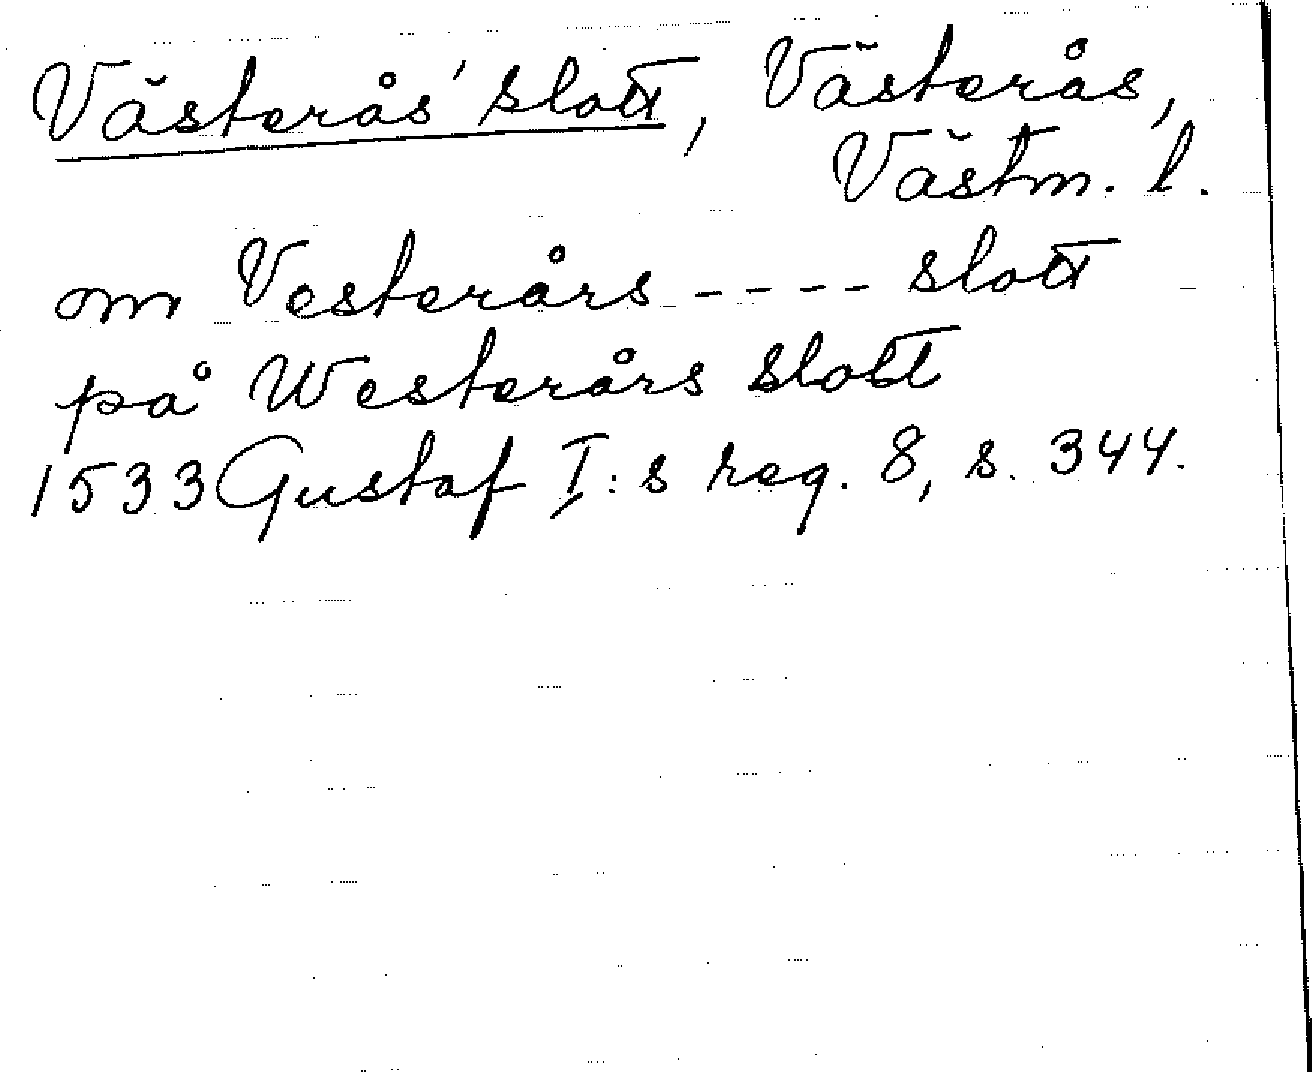 Västerås' slott, Västerås,
Västm. l.
om Vesterårs ---- slott
på Westerårs slott
1533 Gustaf I:s reg. 8, s. 344.